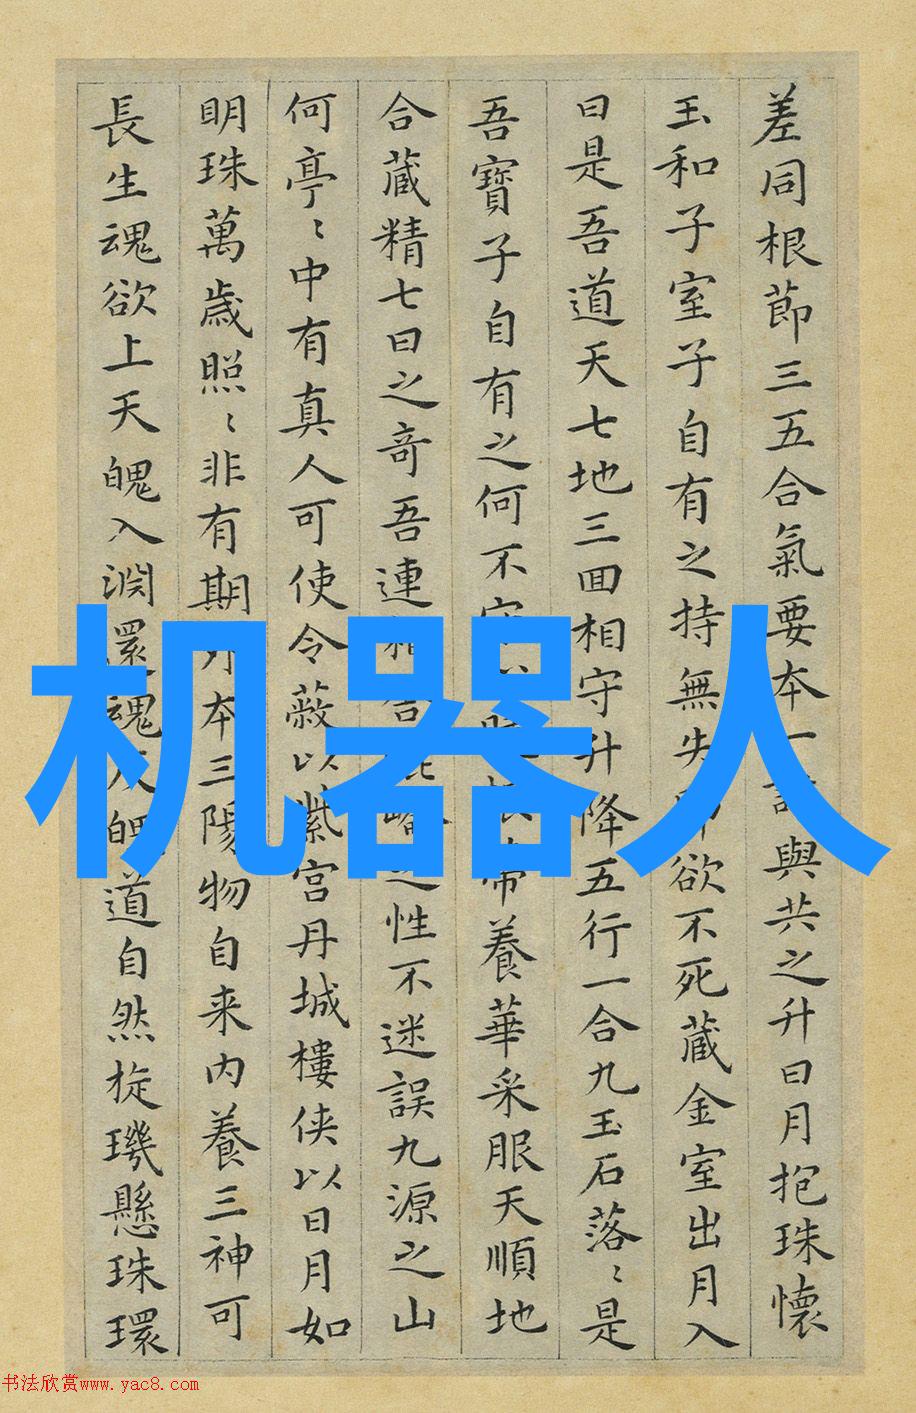 差同根節三五合氣要本一與共之升日月抱珠懷
玉和子室子自有之持無失即欲不死藏金室出月入
日是吾道天七地三回相守升降五行一合九玉石落〻是
吾寶子自有之何不守養華采服天順地
合藏精七日之奇吾連之性不迷誤九源之山
何亭〻中有真人可使令蔽以紫宮丹城樓侠以日月如
明珠萬歲照〻非有期外本三陽物自来内養三神可
長生魂欲上天魄入淵還魂反魄道自然旋璣懸珠環
机器人
书法欣赏www.yac8.com